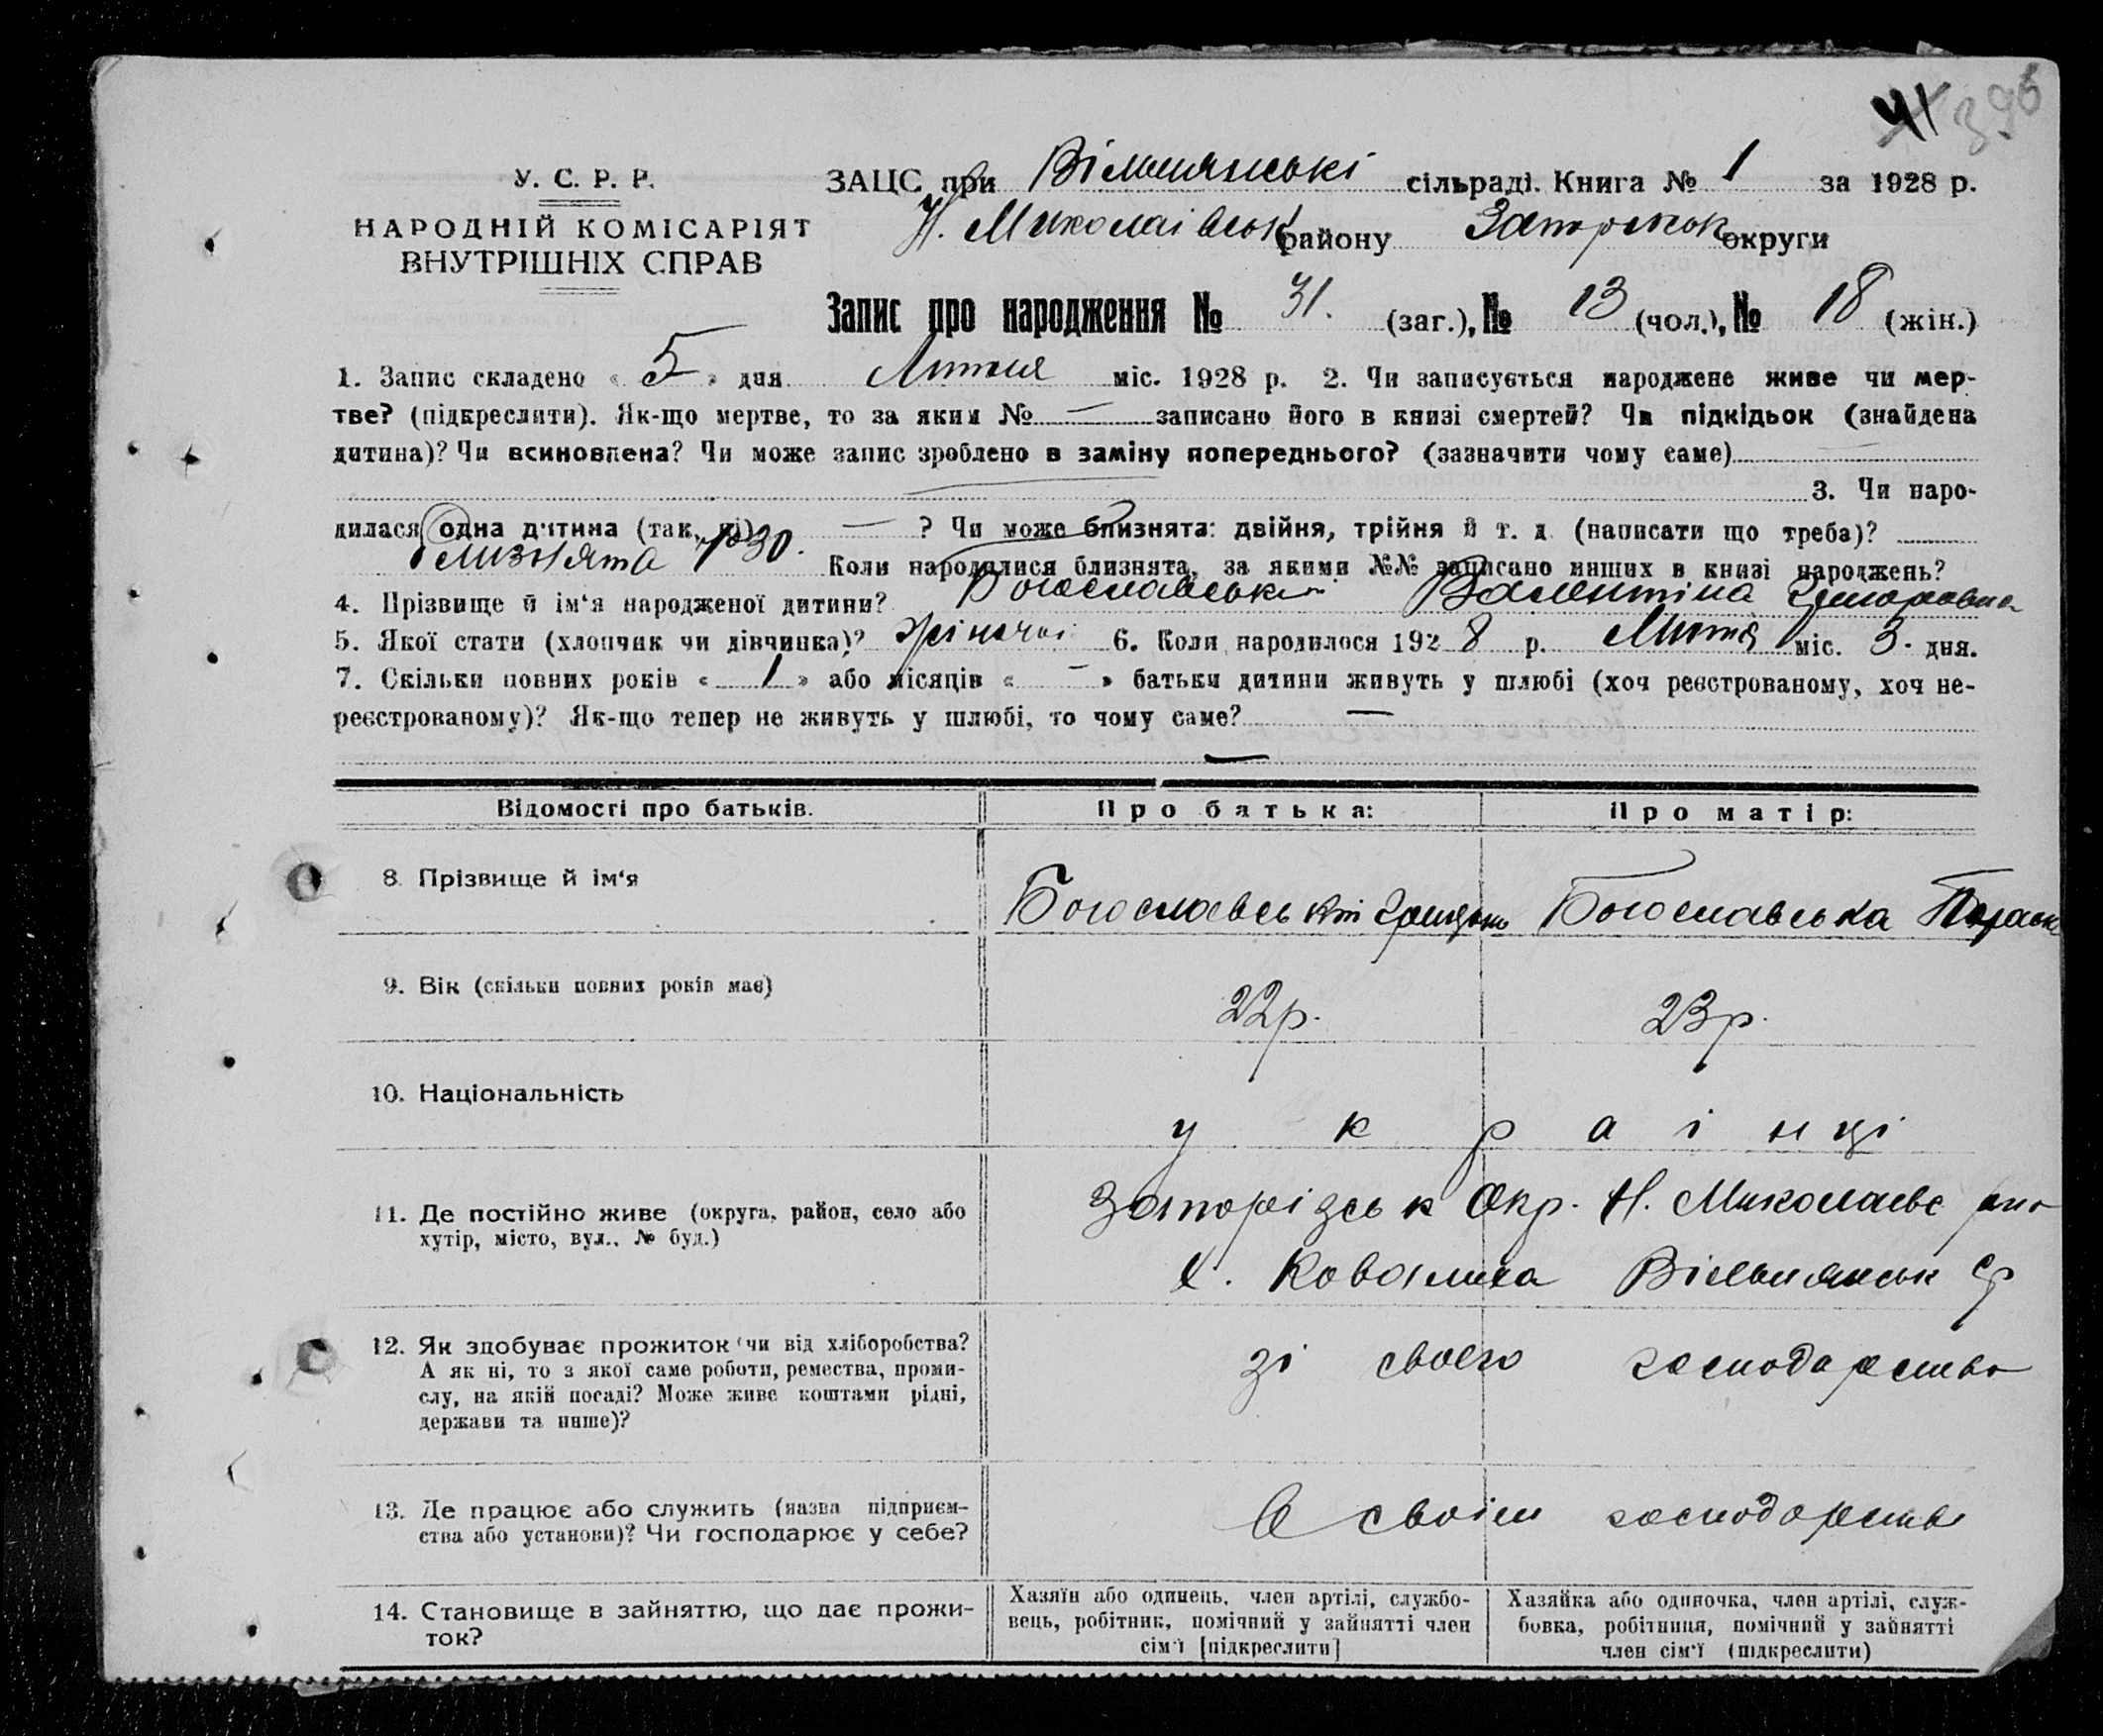 41 396
У. С. Р. Р.
НАРОДНІЙ КОМІСАРІЯТ
ВНУТРІШНІХ СПРАВ
ЗАЦС при Вільнянські сільраді. Книга № 1 за 1928 р.
Н. Миколаівськ району округи
Запис про народження № 31. (заг.), № 13 (чол.), № 18 (жін.)
1. Запис складено « 5 » дня міс. 1928 р. 2. Чи записується народжене живе чи мер-
тве? (підкреслити). Як-що мертве, то за яким № — записано його в книзі смертей? Чи підкідьок (знайдена
дитина)? Чи всиновлена? Чи може запис зроблено в заміну попереднього? (зазначити чому саме)
3. Чи наро-
дилася одна дитина (так, ні) — ? Чи може близнята: двійня, трійня й т. д. (написати що треба)?
близнята №30. Коли народилися близнята, за якими №№ записано инших в книзі народжень?
4. Прізвище й ім‘я народженої дитини? Богославський Валентіна
5. Якої статі (хлопчик чи дівчинка)? жіночої 6. Коли народилося 1928 р. міс. 3. дня.
7. Скільки повних років « 1 » або місяців « — » батьки дитини живуть у шлюбі (хоч реєстрованому, хоч не-
реєстрованому)? Як-що тепер не живуть у шлюбі, то чому саме? —
—
Відомості про батьків. Про батька: Про матір:
8. Прізвище й ім‘я Богославський Богославська Параск
9. Вік (скільки повних років має) 22р. 23р.
10. Національність українці
11. Де постійно живе (округа, район, село або Запорізськ Окр. Н. Миколаевс
хутір, місто, вул., № буд.) х. Ковалиха Вільнянськ ср
12. Як здобуває прожиток (чи від хліборобства? зі свого господарства
А як ні, то з якої саме роботи, ремества, проми-
слу, на якій посаді? Може живе коштами рідні,
держави та инше)?
13. Де працює або служить (назва підприєм- В своїм господарстві
ства або установи)? Чи господарює у себе?
14. Становище в зайняттю, що дає прожи-
ток?
Хазяїн або одинець, член артілі, службо-
вець, робітник, помічний у зайнятті член
сім‘ї [підкреслити]
Хазяйка або одиночка, член артілі, служ-
бовка, робітниця, помічний у зайнятті
член сім‘ї (підкреслити)